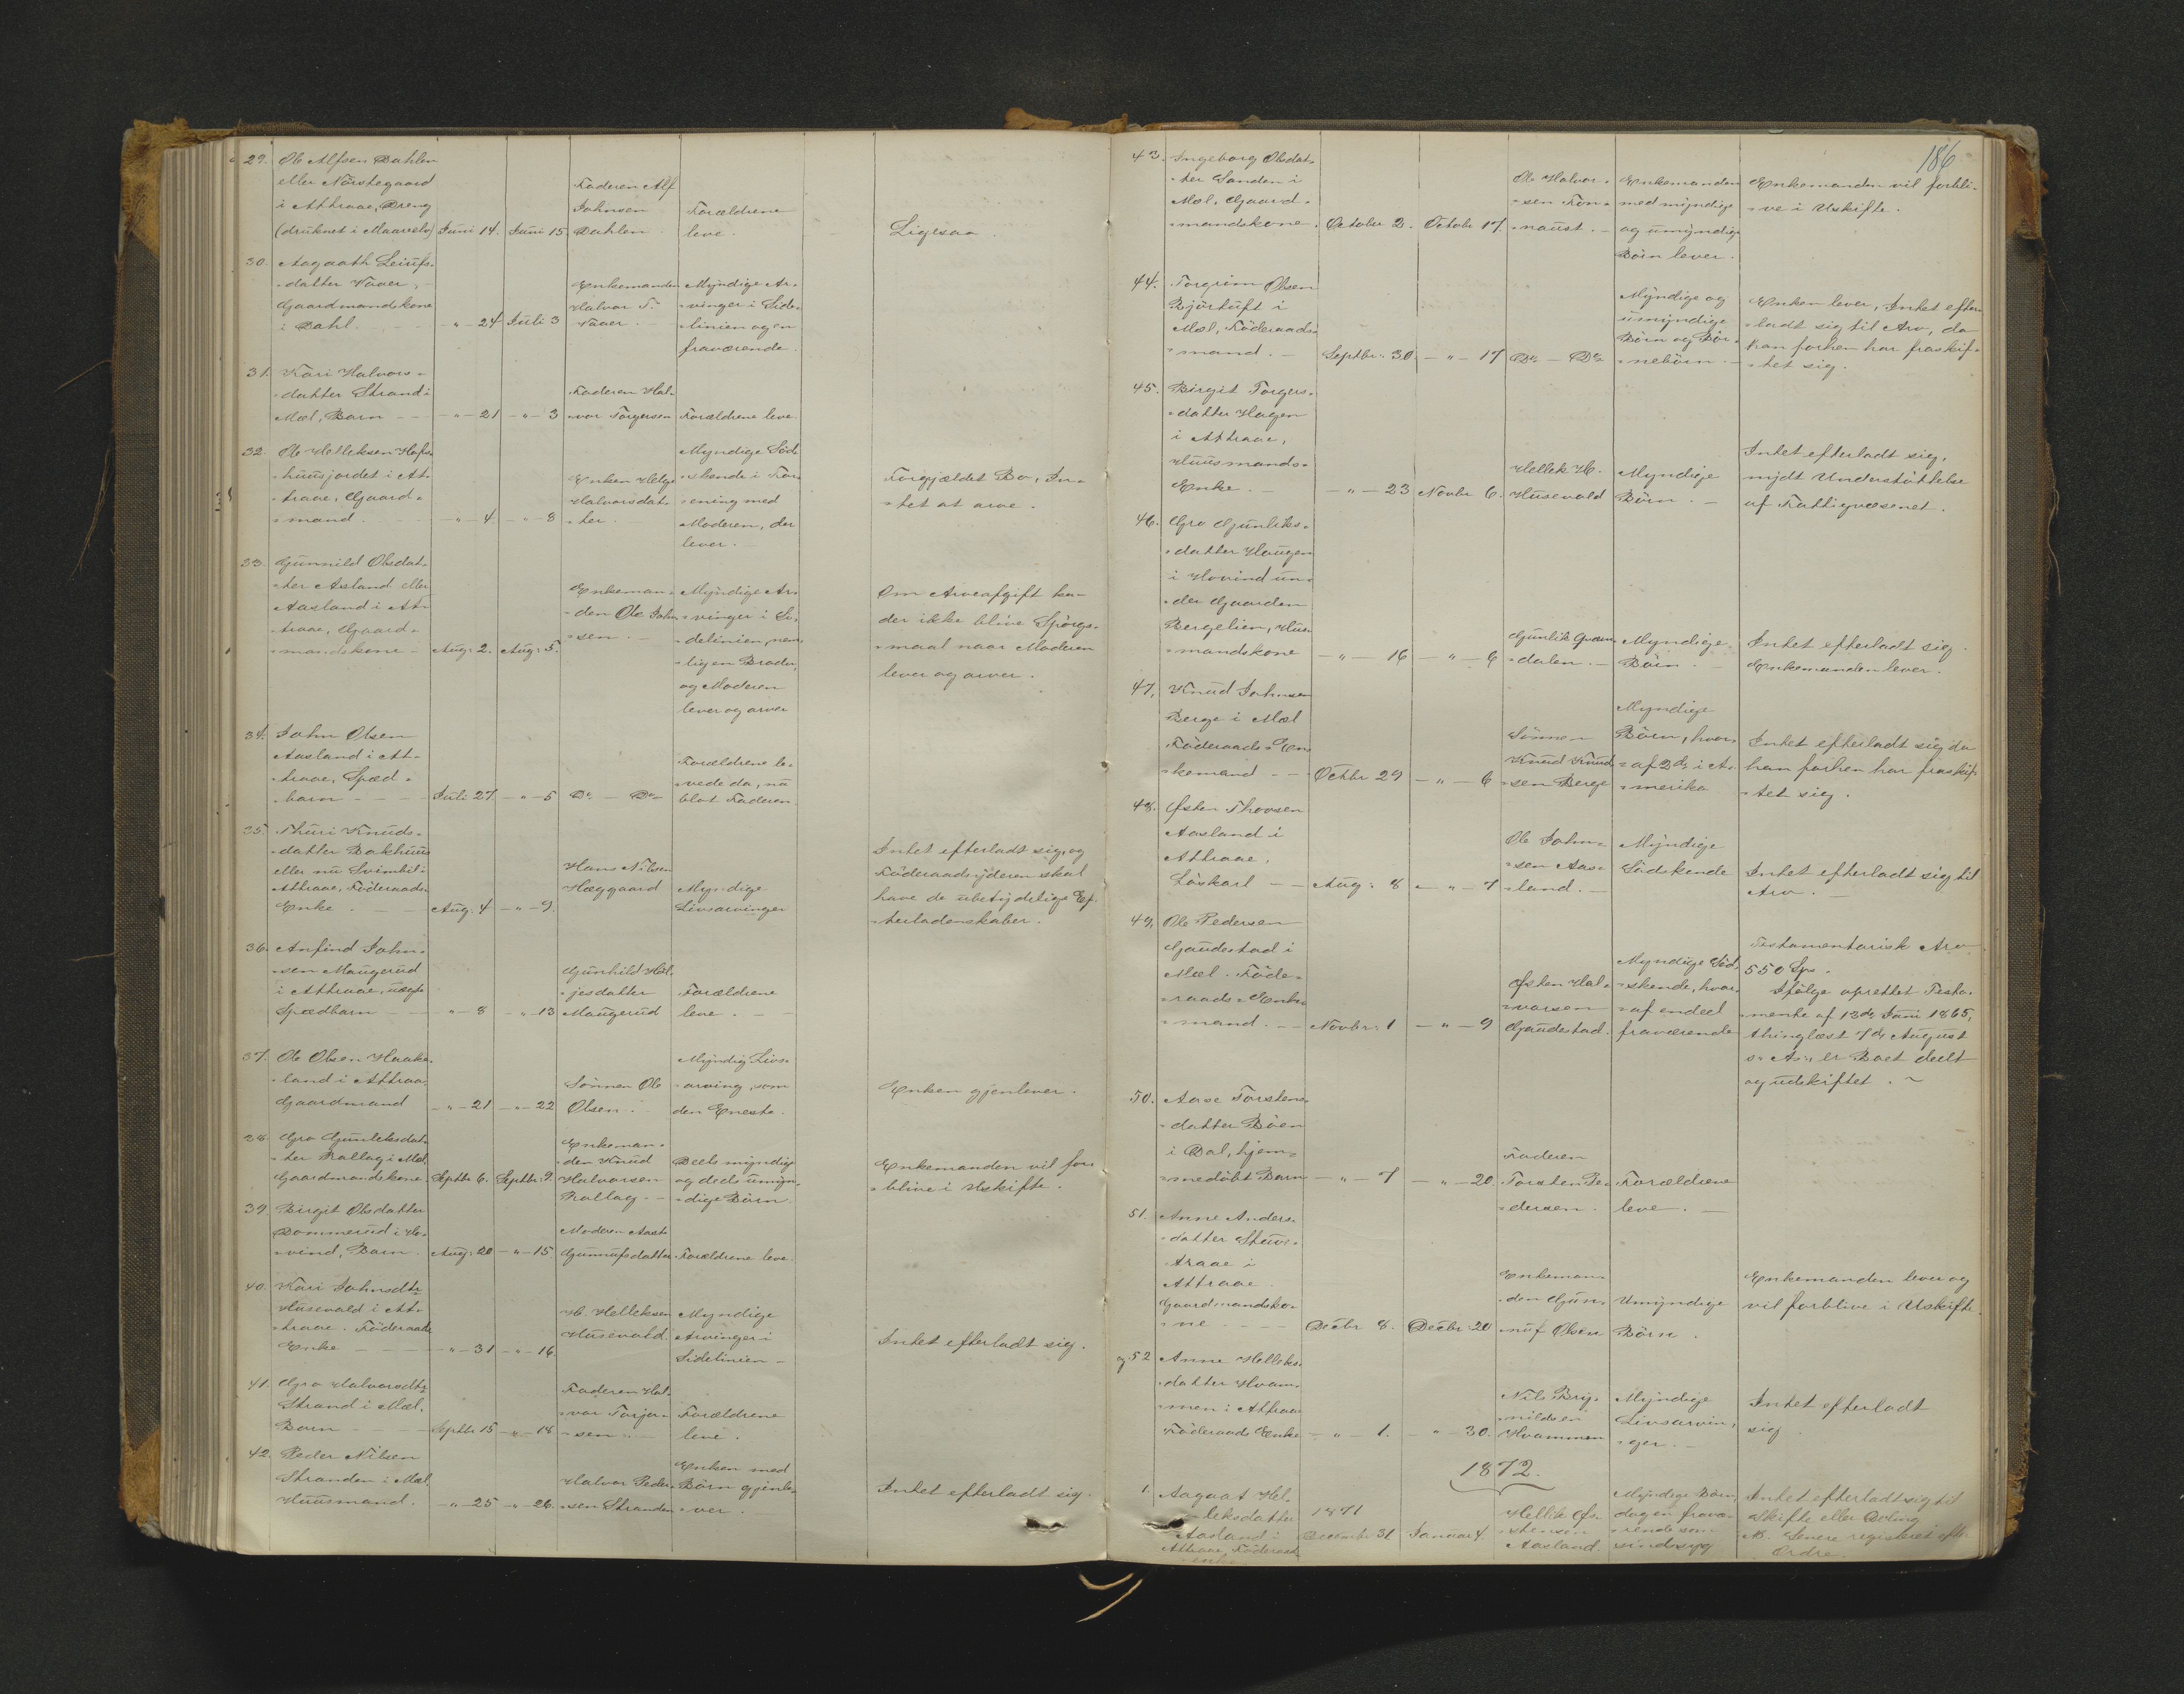 29. Ole Alfsen Dahlen
eller Nörstegaard
i Attraae, Dreng
(druknet i Maarelv) Juni 14. Juni 15
Faderen Alf
Johnsen
Dahlen.
Forældrene
leve.
Ligesaa.
30. Aagaath Leiufs-
datter Vaaer,
Gaardmandskone
i Dahl. - " - 24 Juli 3
Enkemanden
Halvor T.
Vaaer.
Myndige Ar-
vinger i Side-
linien og en
fraværende.
31. Kari Halvors-
datter Strand i
Mæl, Barn - " - 21 - " - 3
Faderen Hal-
vor Torgersen
Forældrene leve
32. Ole Helleksen
huusjordet i At-
traae, Gaard-
mand. - " - 4. - " - 8
Enken Helge
Halvorsdat-
ter.
Myndige Söd-
skende i For-
ening med
Moderen, der
lever.
Forgjældet Bo, In-
tet at arve.
33. Gunnild Olsdat-
ter Aasland eller
Aasland i At-
traae, Gaard-
mandskone - Aug: 2. Aug: 5.
Enkeman-
den Ole John-
sen.
Myndige Ar-
vinger i Si-
delinien, nem-
ligen Broder,
og Moderen
lever og arver
Om Arveafgift kan
der ikke blive Spörgs-
maal naar Moderen
lever og arver.
34. John Olsen
Aasland i At-
traae, Spæd-
barn - Juli 27 - " - 5 Do - Do
Forældrene le-
vede da, nu
blot Faderen.
35. Thuri Knuds-
datter Bakhuus
eller nu Svinbil i
Attraae, Föderaads-
Enke. - Aug: 4 - " - 9.
Hans Nilsen
Hæggaard
Myndige
Livsarvinger
Intet efterladt sig, og
Föderaadsyderen skal
have de ubetydelige Ef-
terladenskaber.
36. Anfind John-
sen Maugerud
i Attraae, uægte
Spædbarn - " - 8 - " - 13
Gunhild Hel-
jesdatter
Maugerud
Forældrene
leve.
37. Ole Olsen Haake-
land i Attraae,
Gaardmand - " - 21 - " - 22
Sönnen Ole
Olsen.
Myndig Livs-
arving, som
den Eneste.
Enken gjenlever.
38. Gro Gunleksdat-
ter Rollag i Mæl,
Gaardmandskone Septbr 6. Septbr: 9.
Enkeman-
den Knud
Halvorsen
Rollag. -
Deels myndige
og deels umyn-
dige Börn.
Enkemanden vil for-
blive i Uskifte.
39. Birgit Olsdatter
Dommerud i Ho-
vind, Barn. Aug: 20 - " - 15.
Moderen Aaste
Gunnufsdatter
Forældrene leve.
40. Kari Johnsdtr
Husevald i At-
traae. Föderaads
Enke - " - 31 - " - 16.
H. Helleksen
Husevald.
Myndige
Arvinger i
Sidelinien -
Intet efterladt sig.
41. Gro Halvorsdtr
Strand i Mæl.
Barn - Septbr 15 - " - 18
Faderen Hal-
vor Torjer-
sen.
Forældrene
leve.
42. Peder Nilsen
Stranden i Mæl
Huusmand. - " - 25 - " - 26.
Halvor Peder-
sen Stranden
Enken med
Börn gjenle-
ver.
Intet efterladt sig.
186
43. Ingeborg Olsdat-
ter Sanden i
Mæl, Gaard-
mandskone. October 2. Octobr 17.
Ole Halvor-
sen Fon-
naust. -
Enkemanden
med myndige
og umyndige
Börn lever.
Enkemanden vil forbli-
ve i Uskifte.
44. Torgrim Olsen
Bjørtuft i
Mæl, Föderaads-
mand. - Septbr: 30. - " - 17 Do - Do
Myndige og
umyndige
Börn og Bör-
nebörn. -
Enken lever, Intet efter-
ladt sig til Arv, da
han forhen har fraskif-
tet sig.
45. Birgit Torgers-
datter Hagen
i Attraae,
Huusmands-
Enke. - " - 23 Novbr 6.
Hellek H.
Husevald
Myndige
Börn. -
Intet efterladt sig,
nydt Understöttelse
af Fattigvæsenet.
46. Gro Gunleks-
datter Haugen
i Hovind un-
der Gaarden
Bergelien, Hus-
mandskone - " - 16 - " - 6
Gunlik
dalen. -
Myndige
Börn. -
Intet efterladt sig.
Enkemanden lever.
47. Knud Johnsen
Berge i Mæl
Föderaads-En-
kemand - Octbr 29 - " - 6
Sönnen
Knud Knud-
sen Berge
Myndige
Börn, hvor-
af 2de i A-
merika
Intet efterladt sig da
han forhen har fraskif-
tet sig.
48. Østen Thovsen
Aasland i
Attraae,
Löskarl - Aug: 8 - " - 7
Ole John-
sen Aas-
land. -
Myndige
Södskende
Intet efterladt sig til
Arv. -
49. Ole Pedersen
Gaudestad i
Mæl. Föde-
raads-Enke-
mand. - Novbr: 1 - " - 9
Østen Hal-
vorsen
Gaudestad.
Myndige Söd-
skende, hvor-
af endeel
fraværende
Testamentarisk Arv
550 Spd.
Ifölge oprettet Testa-
mente af 13de Juni 1865,
thinglæst 7de August
s. A., er Boet deelt
og udskiftet.
50. Aase Torstens-
datter Böen
i Dal, hjem-
medöbt Barn - " - 7 - " - 20
Faderen
Torsten Pe-
dersen.
Forældrene
leve. -
51. Anne Anders-
datter
traae i
Attraae.
Gaardmandsko-
ne - Decbr 8. Decbr: 20
Enkeman-
den Gun-
nuf Olsen
Umyndige
Börn.
Enkemanden lever og
vil forblive i Uskifte.
og 52 Anne Helleks-
datter Hvam-
men i Attraae
Föderaads Enke - " - 1. - " - 30.
Nils Bry-
nildsen
Hvammen
Myndige
Livsarvin-
ger. -
Intet efterladt
sig.
1872.
1. Aagaat Hel-
leksdatter
Aasland i
Attraae, Föderaads
enke
1871
December 31 Januar 4
Hellik Øs-
stensen
Aasland.
Myndige Börn,
dog en fravæ-
rende som
sindssyg
Intet efterladt sig til
Skifte eller Deling
NB. Senere registreret efter
Ordre.